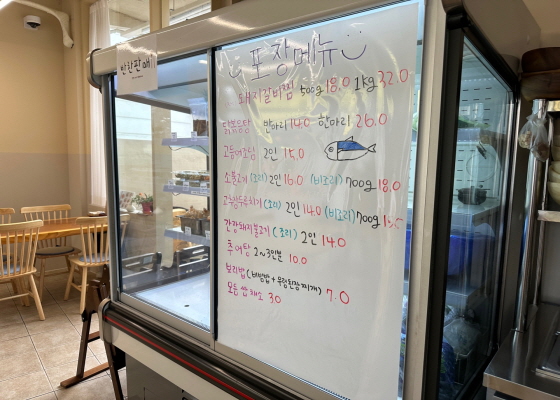 반찬판매
포장메뉴
돼지갈비찜 500g 18.0 1kg 32.0
닭볶음탕 반마리 14.0 한마리 26.0
고등어조림 2인 15.0
소불고기 (조리) 2인 16.0 (비조리) 700g 18.0
(조리) 2인 14.0 (비조리) 700g
간장돼지불고기 (조리) 2인 14.0
추어탕 2~3인분 10.0
보리밥 (비빔밥+우렁된장찌개) 7.0
모듬쌈채소 30